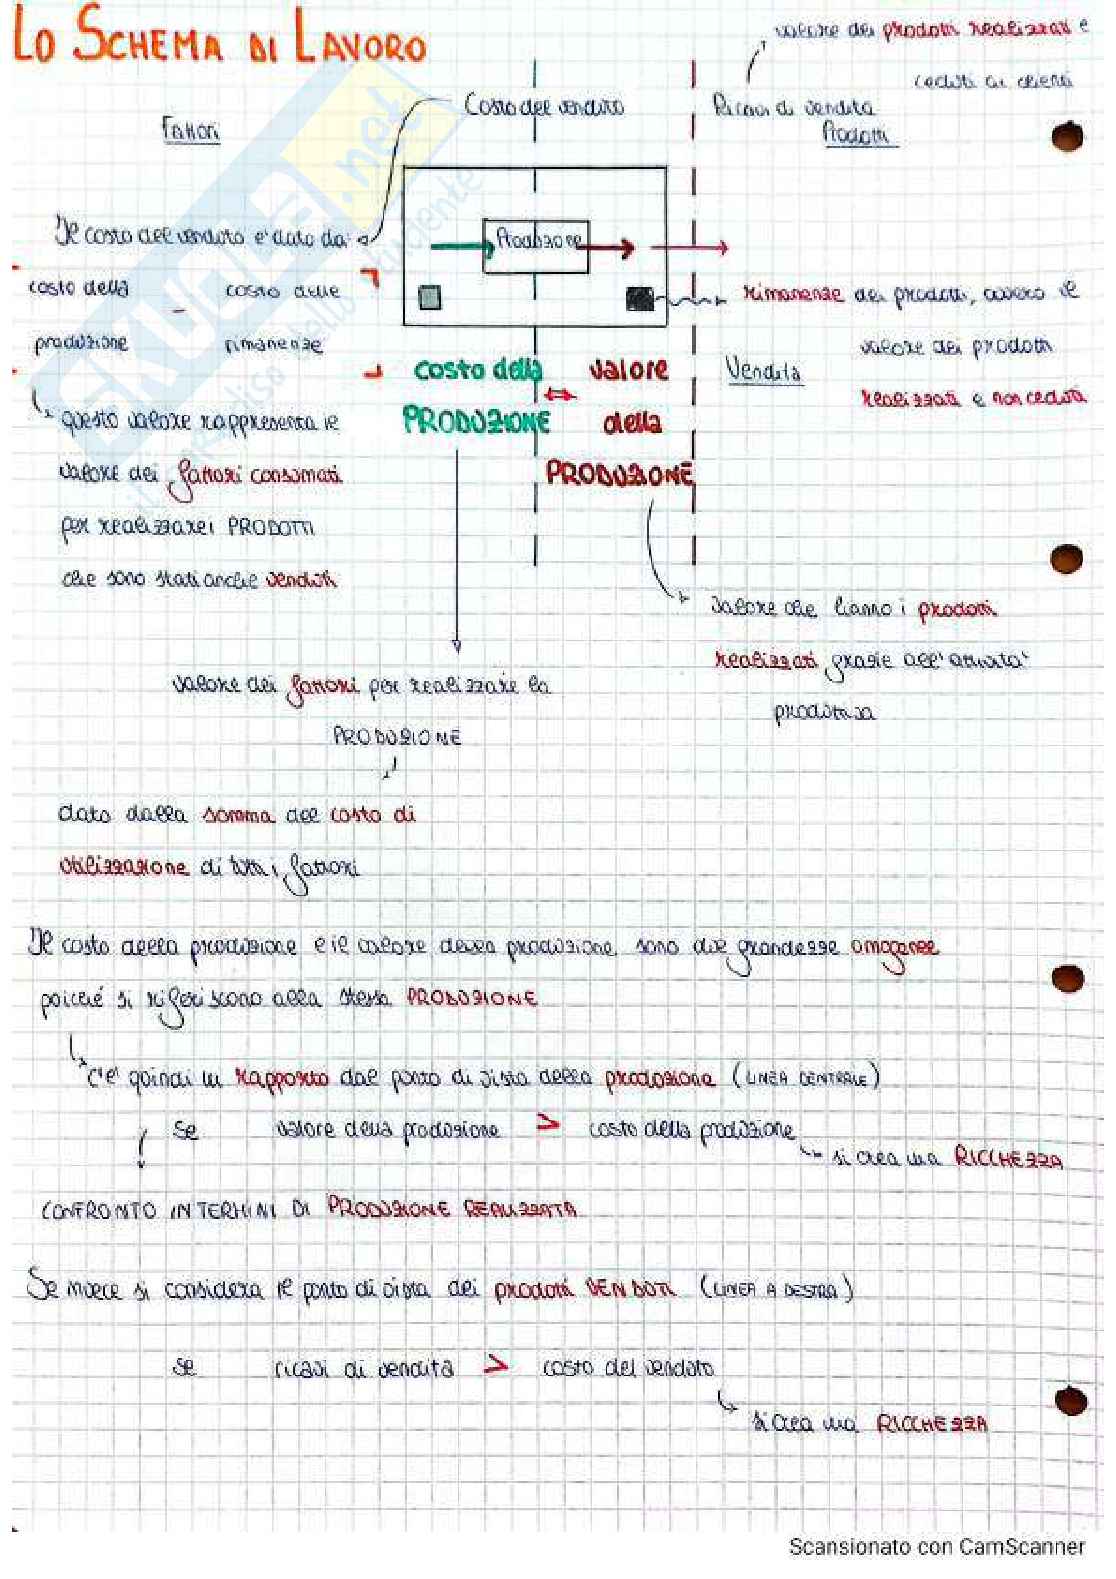 LO SCHEMA DI LAVORO
valore dei prodotti realizzati e
ceduti ai clienti
Costo del venduto
Ricavi di vendita
Fattori
Prodotti
Il costo del venduto e' dato da:
Produzione
costo della - costo delle
produzione rimanenze
rimanenze dei prodotti, ovvero il
valore dei prodotti
realizzati e non ceduti
costo della
PRODUZIONE
valore
della
PRODUZIONE
Vendita
questo valore rappresenta il
valore dei fattori consumati
per realizzare i PRODOTTI
che sono stati anche venduti
valore che hanno i prodotti
realizzati grazie all'attivita'
produttiva
valore dei fattori per realizzare la
PRODUZIONE
dato dalla somma del costo di
utilizzazione di tutti i fattori
Il costo della produzione e il valore della produzione sono due grandezze omogenee
poiché si riferiscono alla stessa PRODUZIONE
c'e' quindi un rapporto dal punto di vista della produzione (LINEA CENTRALE)
se valore della produzione > costo della produzione
si crea una RICCHEZZA
CONFRONTO IN TERMINI DI PRODUZIONE REALIZZATA
Se invece si considera il punto di vista dei prodotti VENDUTI (LINEA A DESTRA)
se ricavi di vendita > costo del venduto
si crea una RICCHEZZA
SKUOLA.net
Scansionato con CamScanner